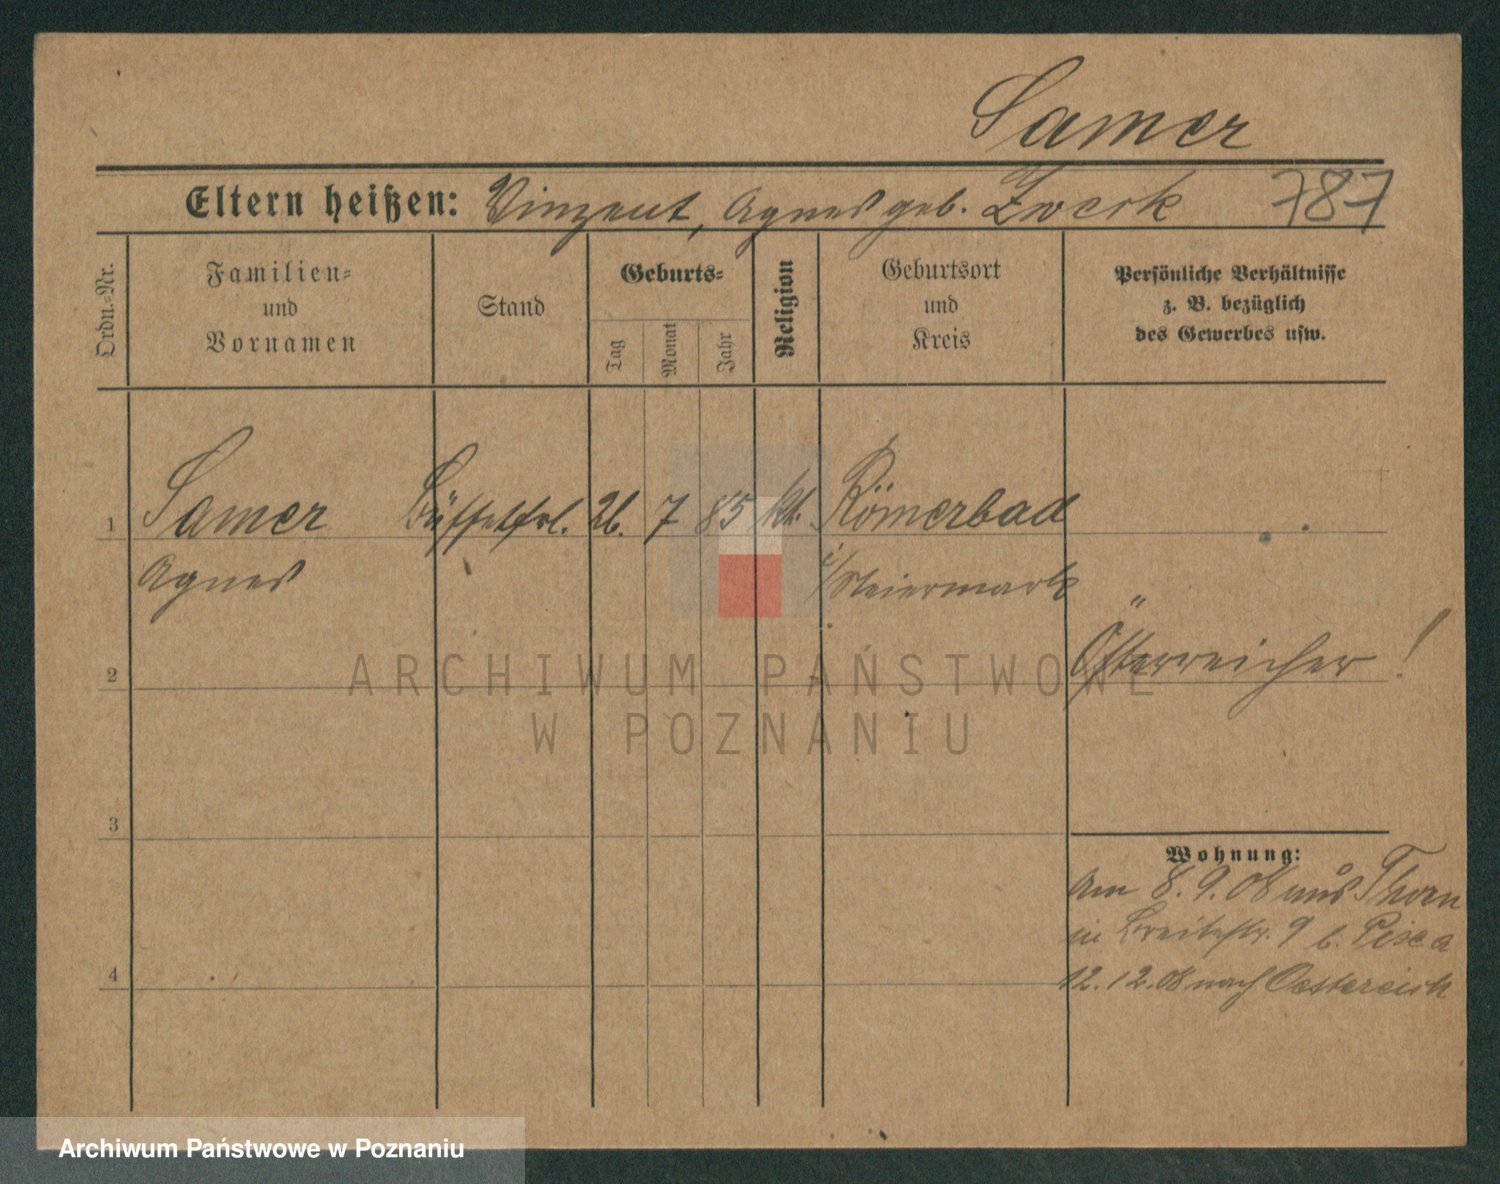 Samer
Eltern heißen: Vinzent, Agnes geb. Zwerk 787
Ordn.-Nr.
Familien-
und
Vornamen
Stand
Geburts-
Tag
Monat
Jahr
Religion
Geburtsort
und
Kreis
Persönliche Verhältnisse
z. B. bezüglich
des Gewerbes usw.
1 Samer Büffetfrl. 26. 7 85 kt. Römerbad
Agnes i/Steiermark
Österreicher!
2
ARCHIWUM PAŃSTWOWE
W POZNANIU
3
Wohnung:
Am 8.9.08 aus Thorn
in Breitestr. 9 b. Pisca
4
12.12.08 nach Oestereich
Archiwum Państwowe w Poznaniu